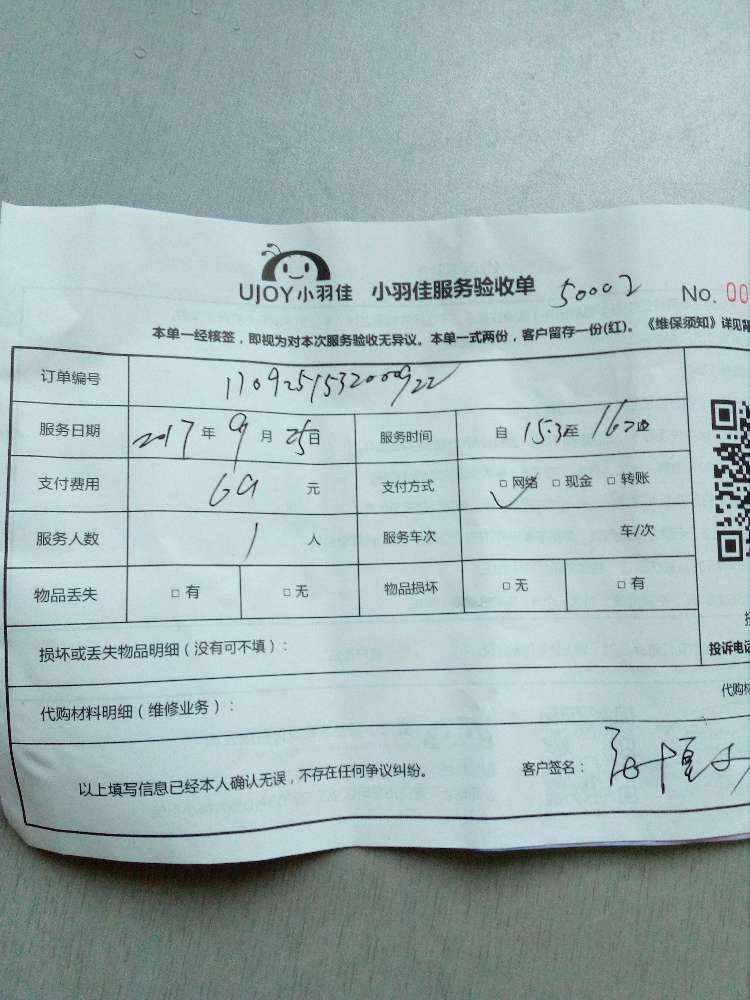 UJOY小羽佳 小羽佳服务验收单 50002 No. 00
本单一经核签，即视为对本次服务验收无异议。本单一式两份，客户留存一份(红)。《维保须知》详见背
订单编号
服务日期 2017 年 9 月 25 日 服务时间 自 15:3 至
支付费用 69 元 支付方式 □ 网络 □ 现金 □ 转账
服务人数 1 人 服务车次 车/次
物品丢失 □ 有 □ 无 物品损坏 □ 无 □ 有
损坏或丢失物品明细（没有可不填）：
投诉电话
代购材料明细（维修业务）：
代购材
以上填写信息已经本人确认无误，不存在任何争议纠纷。 客户签名：